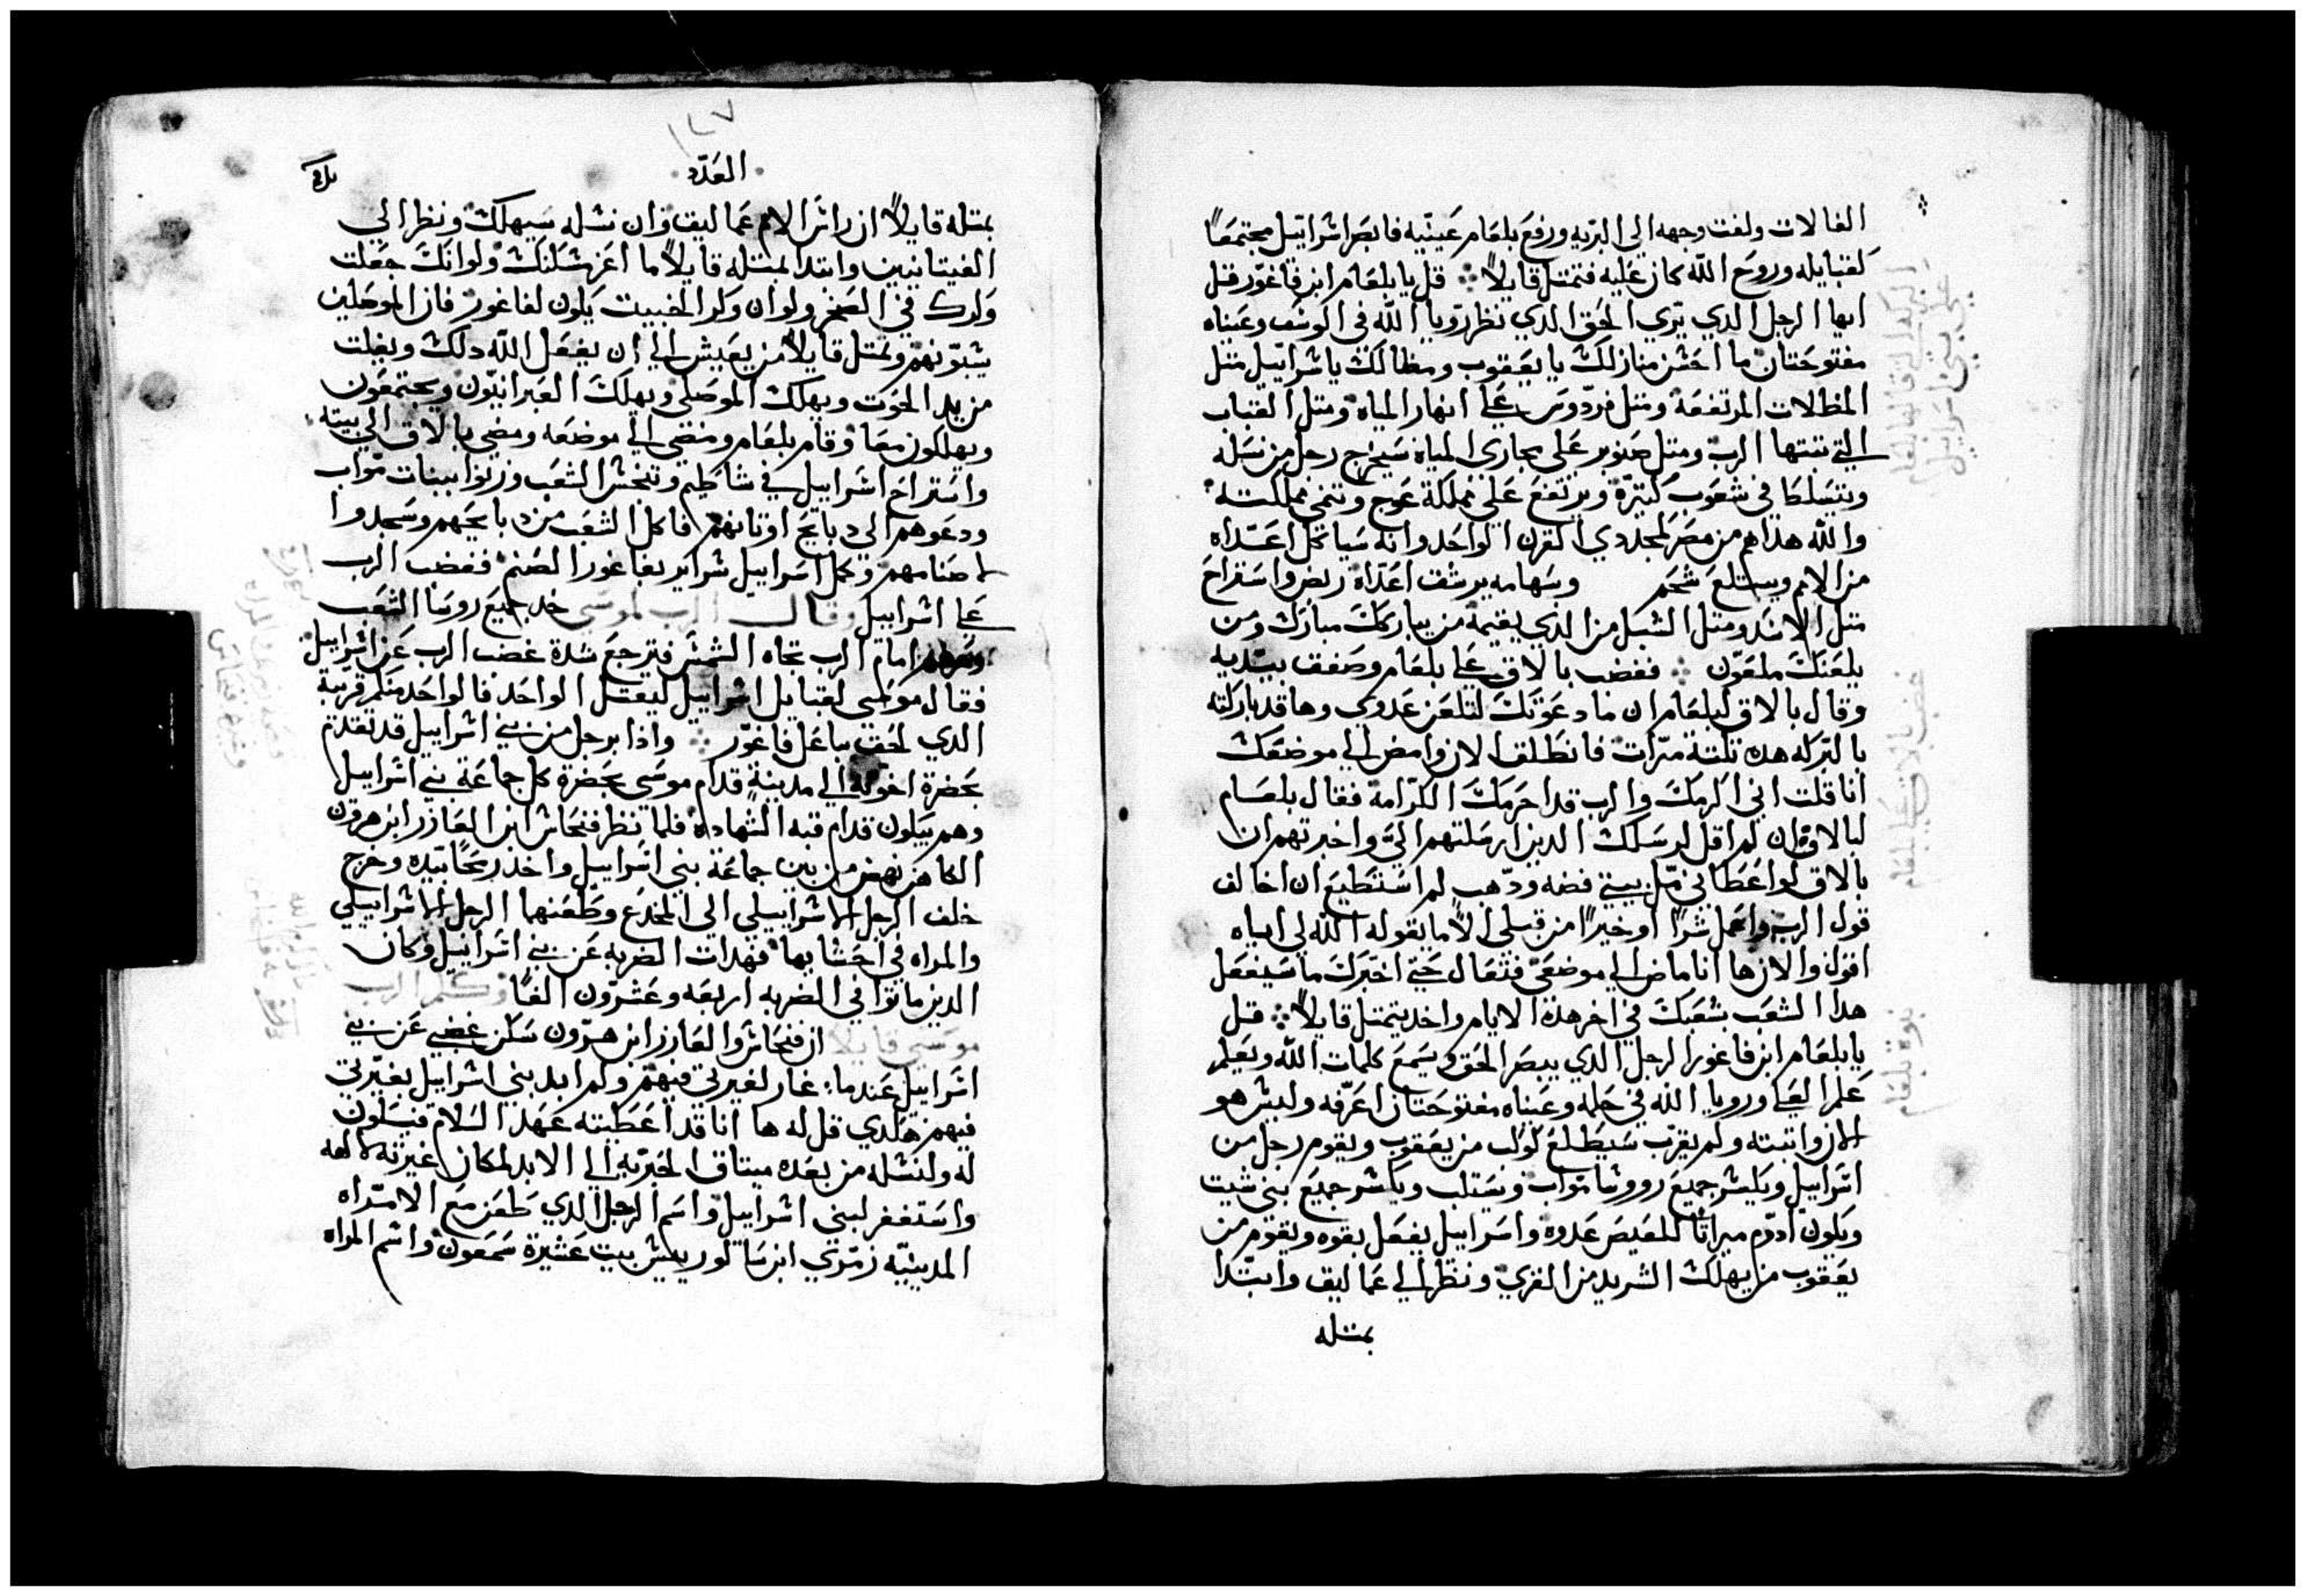 الفالات ولفت وجهه الى البريه ورفع بلعام عينيه فابصر اسراييل مجتمعًا
كقبايله وروح الله كان عليه فتمتل قايلاً قل يا بلعام ابن فاغور قتل
ايها الرجل الدي يري الحق الدي نظر رويا الله في الوسن وعيناه
مفتوحتان ما احسن منازلك يا يعقوب ومظالك يا سراييل متل
المظلات المرتفعة ومتل فردوس علي انهار المياه ومتل القباب
التي تبتها الرب ومتل صنوبر علي مجاري المياه سيخرج رجل من نسله
ويتسلط في شعوب كتيرة ويرتفع علي مملكة عوج وتنمي مملكته
والله هداهم من مصر لمجد دي القرن الواحد وانه سياكل اعداه
من الامم ويبتلع شحم وسهامه يرشق اعداه ربض واستراح
متل الاسد ومتل الشبل من الدي يقيمه من يباركك مبارك ومن
يلعنك ملعون فغضب بالاق علي بلعام وصفق بيديه
وقال بالاق لبلعام ان ما دعوتك لتلعن عدوي وها قد باركته
بالبركه هده تلتة مرات فانطلق الان وامض الي موضعك
انا قلت اني اكرمك والرب قد احرمك الكرامة فقال بلعام
لبالاق ان لم اقل لرسلك الدين ارسلتهم الي واخبرتهم ان
بالاق لو اعطاني مل بيته فضه ودهب لم استطيع ان اخالف
قول الرب واعمل شرًا او خيرًا من قبلي الاّ ما يقوله الله لي اياه
اقول والان ها انا ماض الي موضعي فتعال حتي اخبرك ما سيفعل
هدا الشعب بشعبك في اخر هده الايام واخد يتمتل قايلاً قتل
يا بلعام ابن فاغور الرجل الدي يبصر الحق ويسمع كلمات الله ويعلم
علم العلي ورويا الله في حلمه وعيناه مفتوحتان اعرفه وليس هو
الان واتبته ولم يقرب سيطلع كوكب من يعقوب ويقوم رجل من
اسراييل ويكسر جميع رووسا مواب ويستلب ويكسر جميع بني شيت
ويكون ادوم ميراتًا للعيص عدوه واسراييل يفعل بقوه ويقوم من
يعقوب من يهلك الشريد من القري ونظر الي عماليق وابتدا
بمتله
العدد
بمتله قايلاً ان راس الامم عماليق وان نسله سيهلك ونظر الي
الفيتانيين وابتدا بمتله قايلاً ما اعز سكنك ولو انك جعلت
وكرك في الصخر ولو ان وكر الخبيت يكون لفاغور فان الموصلين
يسبونهم وتمتل قايلاً من يعيش الي ان يفعل الله دلك ويفلت
من يد الحوت ويهلك الموصلي ويهلك العبرانيون ويجتمعون
ويهلكون معا وقام بلعام ومضي الي موضعه ومضي بالاق الي بيته
واستراح اسراييل في شاطيم وتنجس الشعب وزنوا ببنات مواب
ودعوهم الي دبايح اوتانهم فاكل الشعب من دبايحهم وسجدوا
لاصنامهم وكمل اسراييل شراير بفاغور الصنم فغضب الرب
علي اسراييل وقال الرب لموسي خد جميع روسا الشعب
امام الرب تجاه الشمس فترجع شدة غضب الرب عن اسراييل
فقال موسي لقبايل اسراييل ليقتل الواحد فالواحد منكم قريبة
الدي لحق بباعل فاغور وادا برجل من بني اسراييل قد تقدم
بحضرة اخوته الي مدينية قدام موسي بحضرة كل جماعة بني اسراييل
وهم يبكون قدام قبه الشهاده فلما نظر فنحاس ابن العازر ابن هرون
الكاهن نهض من بين جماعة بني اسراييل واخد رمحًا بيده وخرج
خلف الرجل الاسراييلي الي المخدع وطعنهما الرجل الاسراييلي
والمراه في احشايها فهدات الضربه عن بني اسراييل وكان
الدين ماتوا في الضربه اربعه وعشرون الفًا وكلم الرب
موسي قايلا ان فنحاس والعازر ابن هرون سكن غضبي عن بني
اسراييل عندما غار لغيرتي فيهم ولم ابد بني اسراييل بغيرتي
فيهم هكدي قل له ها انا قد اعطيته عهد السلام فيكون
له ولنسله من بعده ميتاق الحبريه الي الابد لمكان غيرته لالهه
واستغفر لبني اسراييل واسم الرجل الدي طعن مع الامراه
المدينيه زمري ابن سالو رييس بيت عشيرة سمعون واسم المراه